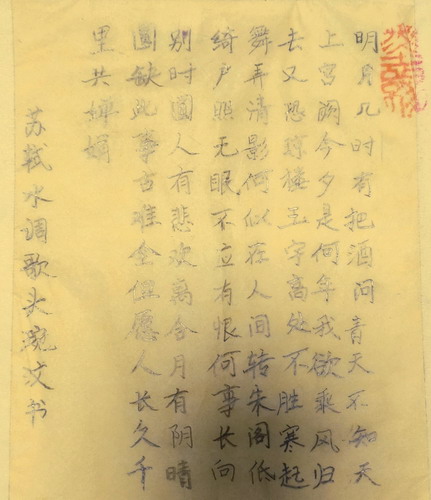 明月几时有把酒问青天不知天
上宫阙今夕是何年我欲乘风归
去又恐琼楼玉宇高处不胜寒起
舞弄清影何似在人间转朱阁低
绮户照无眠不立有恨何事长向
别时圆人有悲欢离合月有阴晴
圆缺此事古难全但愿人长久千
里共婵娟
苏轼水调歌头汶书